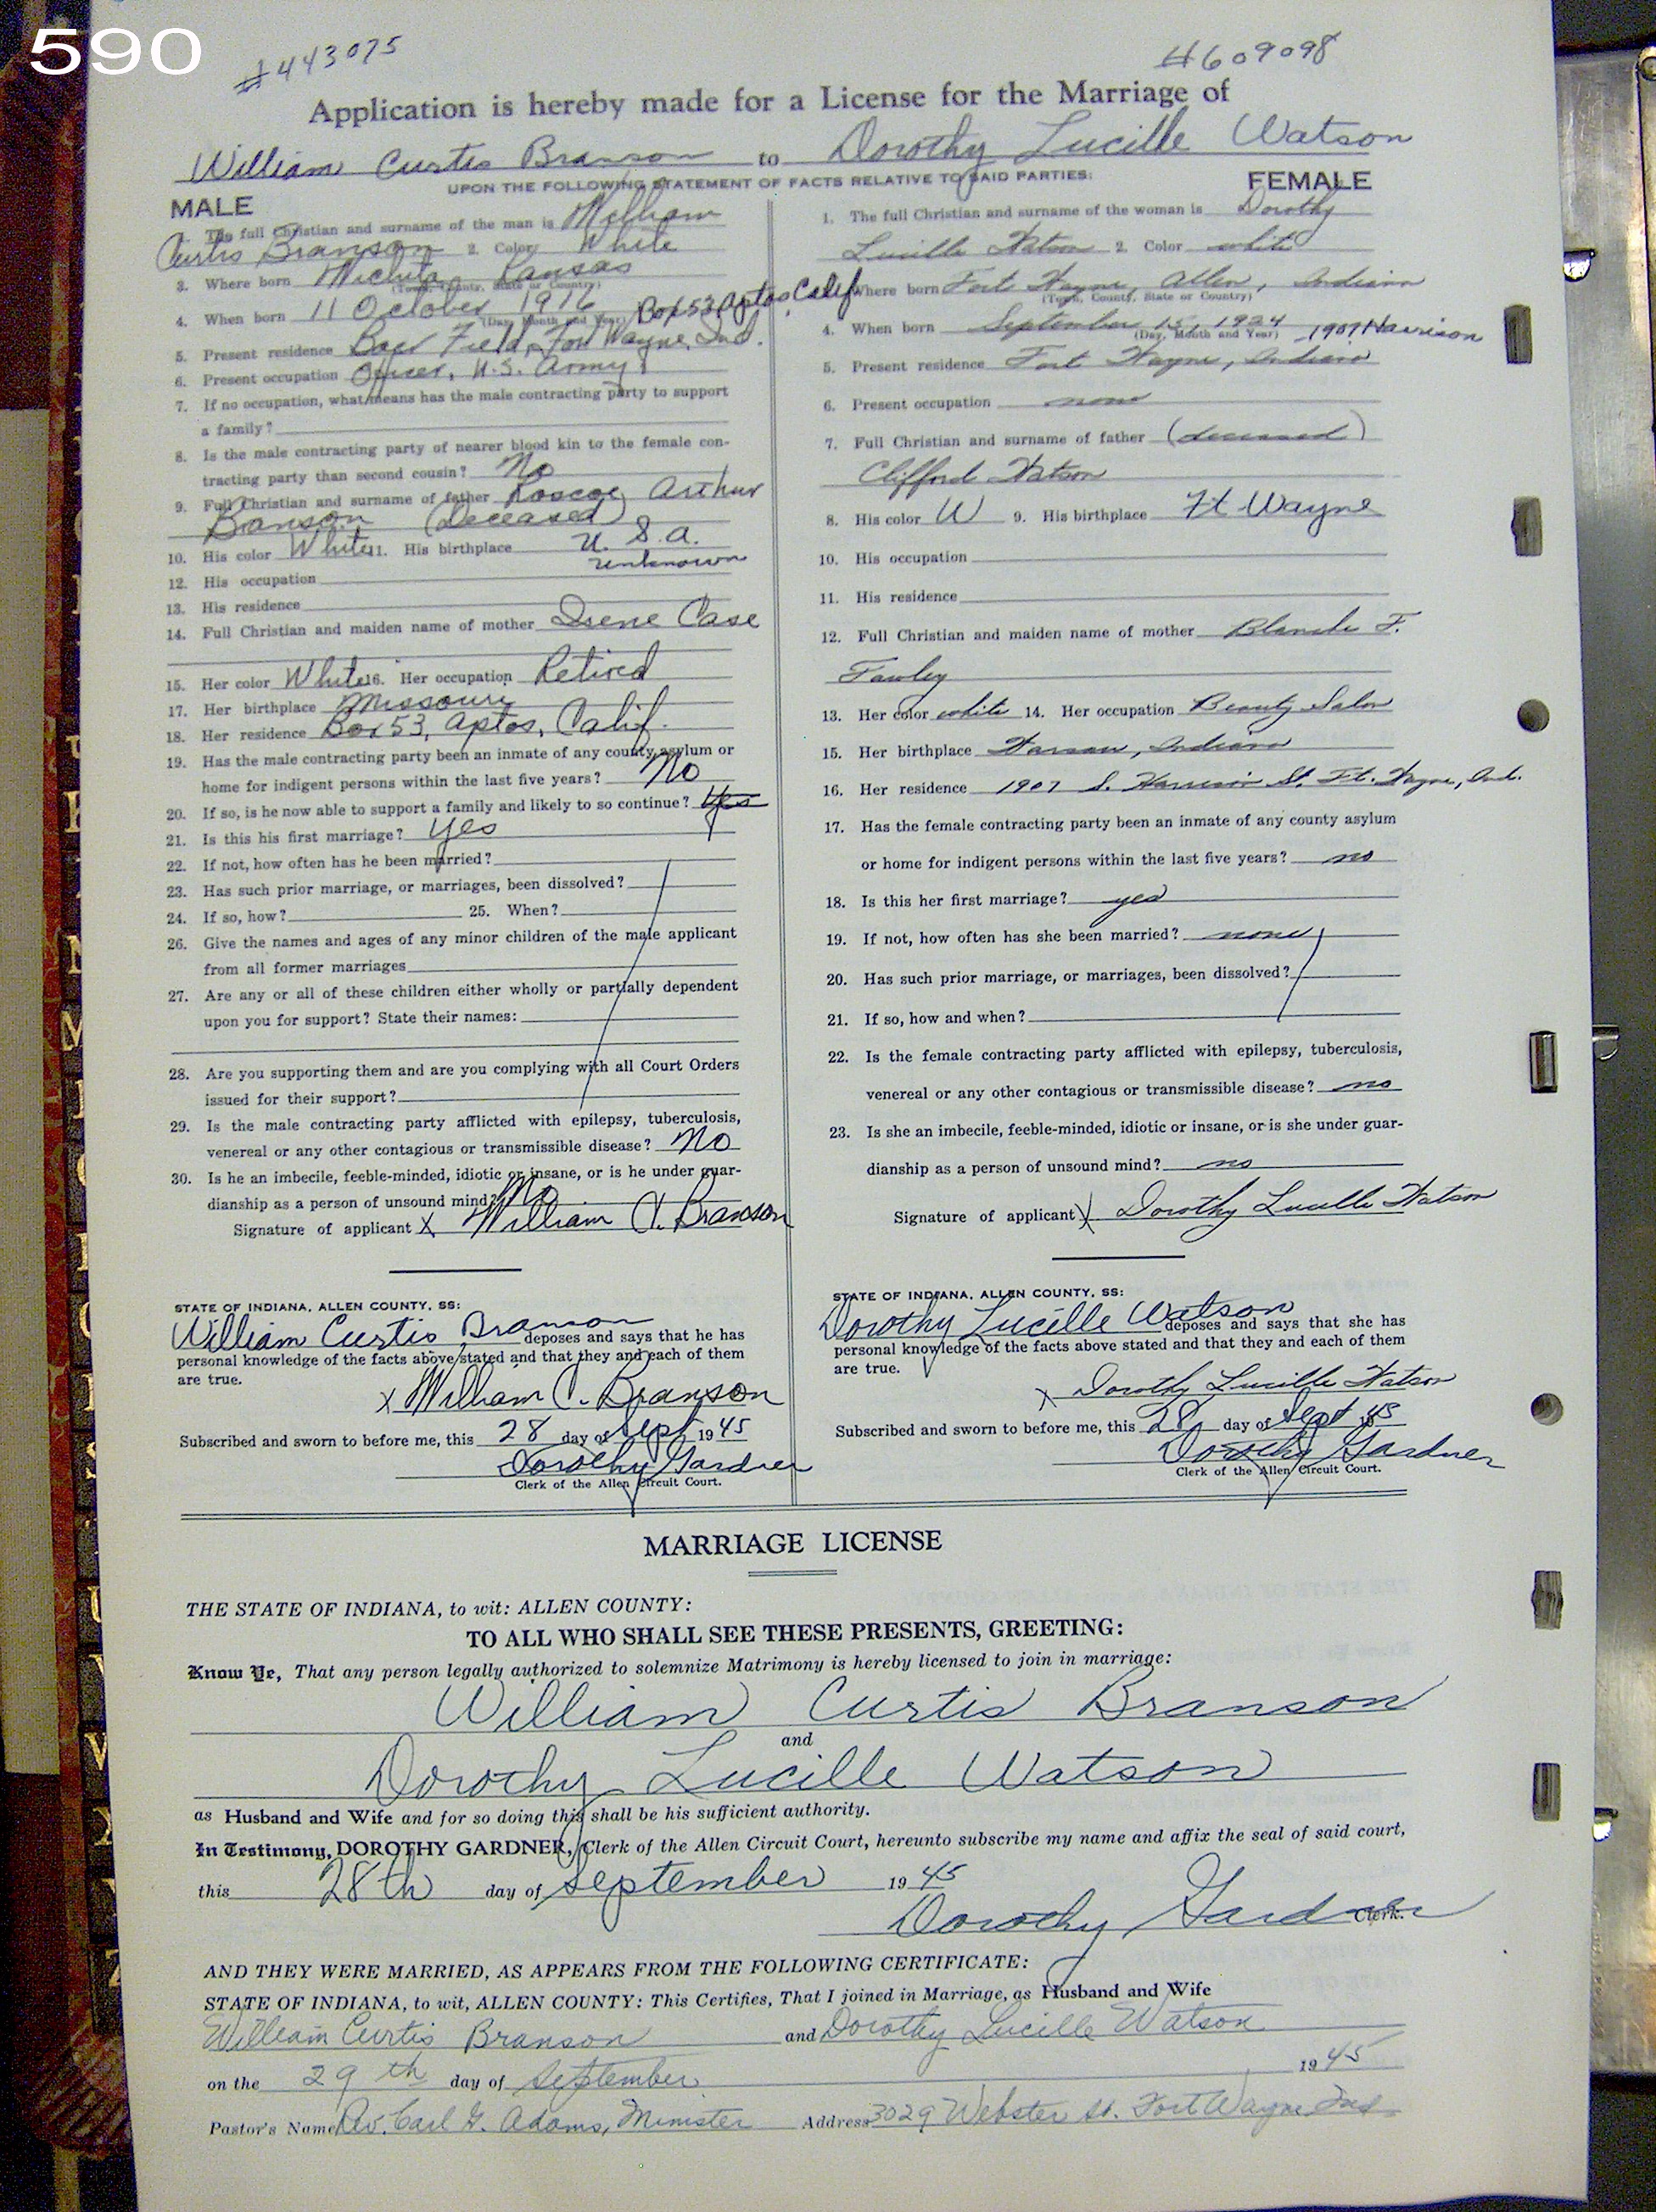 590
#443075
#609098
Application is hereby made for a License for the Marriage of
William Curtis Branson to Dorothy Lucille Watson
UPON THE FOLLOWING STATEMENT OF FACTS RELATIVE TO SAID PARTIES:
MALE
1. The full Christian and surname of the man is William
Curtis Branson 2. Color White
3. Where born Wichita, Kansas
(Town, County, State or Country)
4. When born 11 October 1916 Box 53, Aptos, Calif
(Day, Month and Year)
5. Present residence Baer Field, Fort Wayne, Ind.
6. Present occupation Officer, U.S. Army
7. If no occupation, what means has the male contracting party to support
a family?
8. Is the male contracting party of nearer blood kin to the female con-
tracting party than second cousin? No
9. Full Christian and surname of father Roscoe Arthur
Branson (Deceased)
10. His color White 11. His birthplace U.S.A.
unknown
12. His occupation
13. His residence
14. Full Christian and maiden name of mother Irene Case
15. Her color White 16. Her occupation Retired
17. Her birthplace Missouri
18. Her residence Box 53, Aptos, Calif.
19. Has the male contracting party been an inmate of any county asylum or
home for indigent persons within the last five years? No
20. If so, is he now able to support a family and likely to so continue? Yes
21. Is this his first marriage? Yes
22. If not, how often has he been married?
23. Has such prior marriage, or marriages, been dissolved?
24. If so, how? 25. When?
26. Give the names and ages of any minor children of the male applicant
from all former marriages
27. Are any or all of these children either wholly or partially dependent
upon you for support? State their names:
28. Are you supporting them and are you complying with all Court Orders
issued for their support?
29. Is the male contracting party afflicted with epilepsy, tuberculosis,
venereal or any other contagious or transmissible disease? No
30. Is he an imbecile, feeble-minded, idiotic or insane, or is he under guar-
dianship as a person of unsound mind? No
Signature of applicant X William C. Branson
STATE OF INDIANA, ALLEN COUNTY, SS:
William Curtis Branson deposes and says that he has
personal knowledge of the facts above stated and that they and each of them
are true.
X William C. Branson
Subscribed and sworn to before me, this 28 day of Sept 1945
Dorothy Gardner
Clerk of the Allen Circuit Court.
FEMALE
1. The full Christian and surname of the woman is Dorothy
Lucille Watson 2. Color white
Where born Fort Wayne, Allen, Indiana
(Town, County, State or Country)
4. When born September 15, 1924 1907 Harrison
(Day, Month and Year)
5. Present residence Fort Wayne, Indiana
6. Present occupation none
7. Full Christian and surname of father (deceased)
Clifford Watson
8. His color W 9. His birthplace Ft Wayne
10. His occupation
11. His residence
12. Full Christian and maiden name of mother Blanche F.
13. Her color white 14. Her occupation Beauty Salon
15. Her birthplace Warsaw, Indiana
16. Her residence 1907 S. Harrison St. Ft. Wayne, Ind.
17. Has the female contracting party been an inmate of any county asylum
or home for indigent persons within the last five years? no
18. Is this her first marriage? yes
19. If not, how often has she been married? none
20. Has such prior marriage, or marriages, been dissolved?
21. If so, how and when?
22. Is the female contracting party afflicted with epilepsy, tuberculosis,
venereal or any other contagious or transmissible disease? no
23. Is she an imbecile, feeble-minded, idiotic or insane, or is she under guar-
dianship as a person of unsound mind? no
Signature of applicant X Dorothy Lucille Watson
STATE OF INDIANA, ALLEN COUNTY, SS:
Dorothy Lucille Watson deposes and says that she has
personal knowledge of the facts above stated and that they and each of them
are true.
X Dorothy Lucille Watson
Subscribed and sworn to before me, this 28 day of Sept 45
Dorothy Gardner
Clerk of the Allen Circuit Court.
MARRIAGE LICENSE
THE STATE OF INDIANA, to wit: ALLEN COUNTY:
TO ALL WHO SHALL SEE THESE PRESENTS, GREETING:
Know Ye, That any person legally authorized to solemnize Matrimony is hereby licensed to join in marriage:
William Curtis Branson
and
Dorothy Lucille Watson
as Husband and Wife and for so doing this shall be his sufficient authority.
In Testimony, DOROTHY GARDNER, Clerk of the Allen Circuit Court, hereunto subscribe my name and affix the seal of said court,
this 28th day of September 1945
Dorothy Gardner Clerk.
AND THEY WERE MARRIED, AS APPEARS FROM THE FOLLOWING CERTIFICATE:
STATE OF INDIANA, to wit, ALLEN COUNTY: This Certifies, That I joined in Marriage, as Husband and Wife
William Curtis Branson and Dorothy Lucille Watson
on the 29th day of September 1945
Pastor's Name Rev. Carl G. Adams, Minister Address 3029 Webster St. Fort Wayne Ind